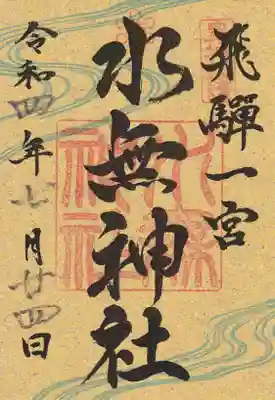 飛驒一宮
水無神社
令和四年七月廿四日